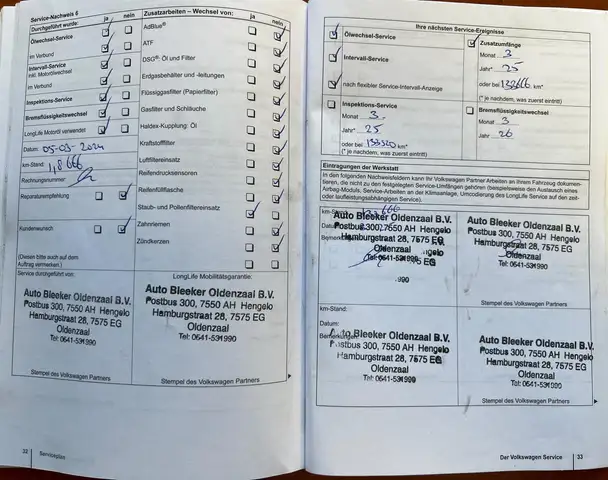 Service-Nachweis 6
Durchgeführt wurde: ja nein
Ölwechsel-Service
im Verbund
Intervall-Service
inkl. Motorölwechsel
im Verbund
Inspektions-Service
Bremsflüssigkeitswechsel
LongLife Motoröl verwendet
Datum: 05-03-2024
km-Stand: 118666
Rechnungsnummer:
Reparaturempfehlung
Kundenwunsch
(Diesen bitte auch auf dem
Auftrag vermerken.)
Zusatzarbeiten – Wechsel von: ja nein
AdBlue®
ATF
DSG®: Öl und Filter
Erdgasbehälter und -leitungen
Flüssiggasfilter (Papierfilter)
Gasfilter und Schläuche
Haldex-Kupplung: Öl
Kraftstofffilter
Luftfiltereinsatz
Reifendrucksensoren
Reifenfüllflasche
Staub- und Pollenfiltereinsatz
Zahnriemen
Zündkerzen
Service durchgeführt von:
Auto Bleeker Oldenzaal B.V.
Postbus 300, 7550 AH Hengelo
Hamburgstraat 28, 7575 EG
Oldenzaal
Tel: 0541-531990
Stempel des Volkswagen Partners
LongLife Mobilitätsgarantie:
Auto Bleeker Oldenzaal B.V.
Postbus 300, 7550 AH Hengelo
Hamburgstraat 28, 7575 EG
Oldenzaal
Tel: 0541-531990
Stempel des Volkswagen Partners
32 Serviceplan
Ihre nächsten Service-Ereignisse
Ölwechsel-Service
Intervall-Service
nach flexibler Service-Intervall-Anzeige
Zusatzumfänge
Monat 3
Jahr* 25
oder bei 133666 km*
(* je nachdem, was zuerst eintritt)
Inspektions-Service
Monat 3
Jahr* 25
oder bei 133320 km*
(* je nachdem, was zuerst eintritt)
Bremsflüssigkeitswechsel
Monat 3
Jahr 26
Eintragungen der Werkstatt
In den folgenden Nachweisfeldern kann Ihr Volkswagen Partner Arbeiten an Ihrem Fahrzeug dokumen-
tieren, die nicht zu den festgelegten Service-Umfängen gehören (beispielsweise den Austausch eines
Airbag-Moduls, Service-Arbeiten an der Klimaanlage, Umcodierung des LongLife Service auf den zeit-
oder laufleistungsabhängigen Service).
km-Stand: 133666
Auto Bleeker Oldenzaal B.V.
Postbus 300, 7550 AH Hengelo
Hamburgstraat 28, 7575 EG
Oldenzaal
Tel: 0541-531990
Auto Bleeker Oldenzaal B.V.
Postbus 300, 7550 AH Hengelo
Hamburgstraat 28, 7575 EG
Oldenzaal
Tel: 0541-531990
Stempel des Volkswagen Partners
km-Stand:
Datum:
Bemerkungen:
Auto Bleeker Oldenzaal B.V.
Postbus 300, 7550 AH Hengelo
Hamburgstraat 28, 7575 EG
Oldenzaal
Tel: 0541-531990
Auto Bleeker Oldenzaal B.V.
Postbus 300, 7550 AH Hengelo
Hamburgstraat 28, 7575 EG
Oldenzaal
Tel: 0541-531990
Stempel des Volkswagen Partners
Der Volkswagen Service 33